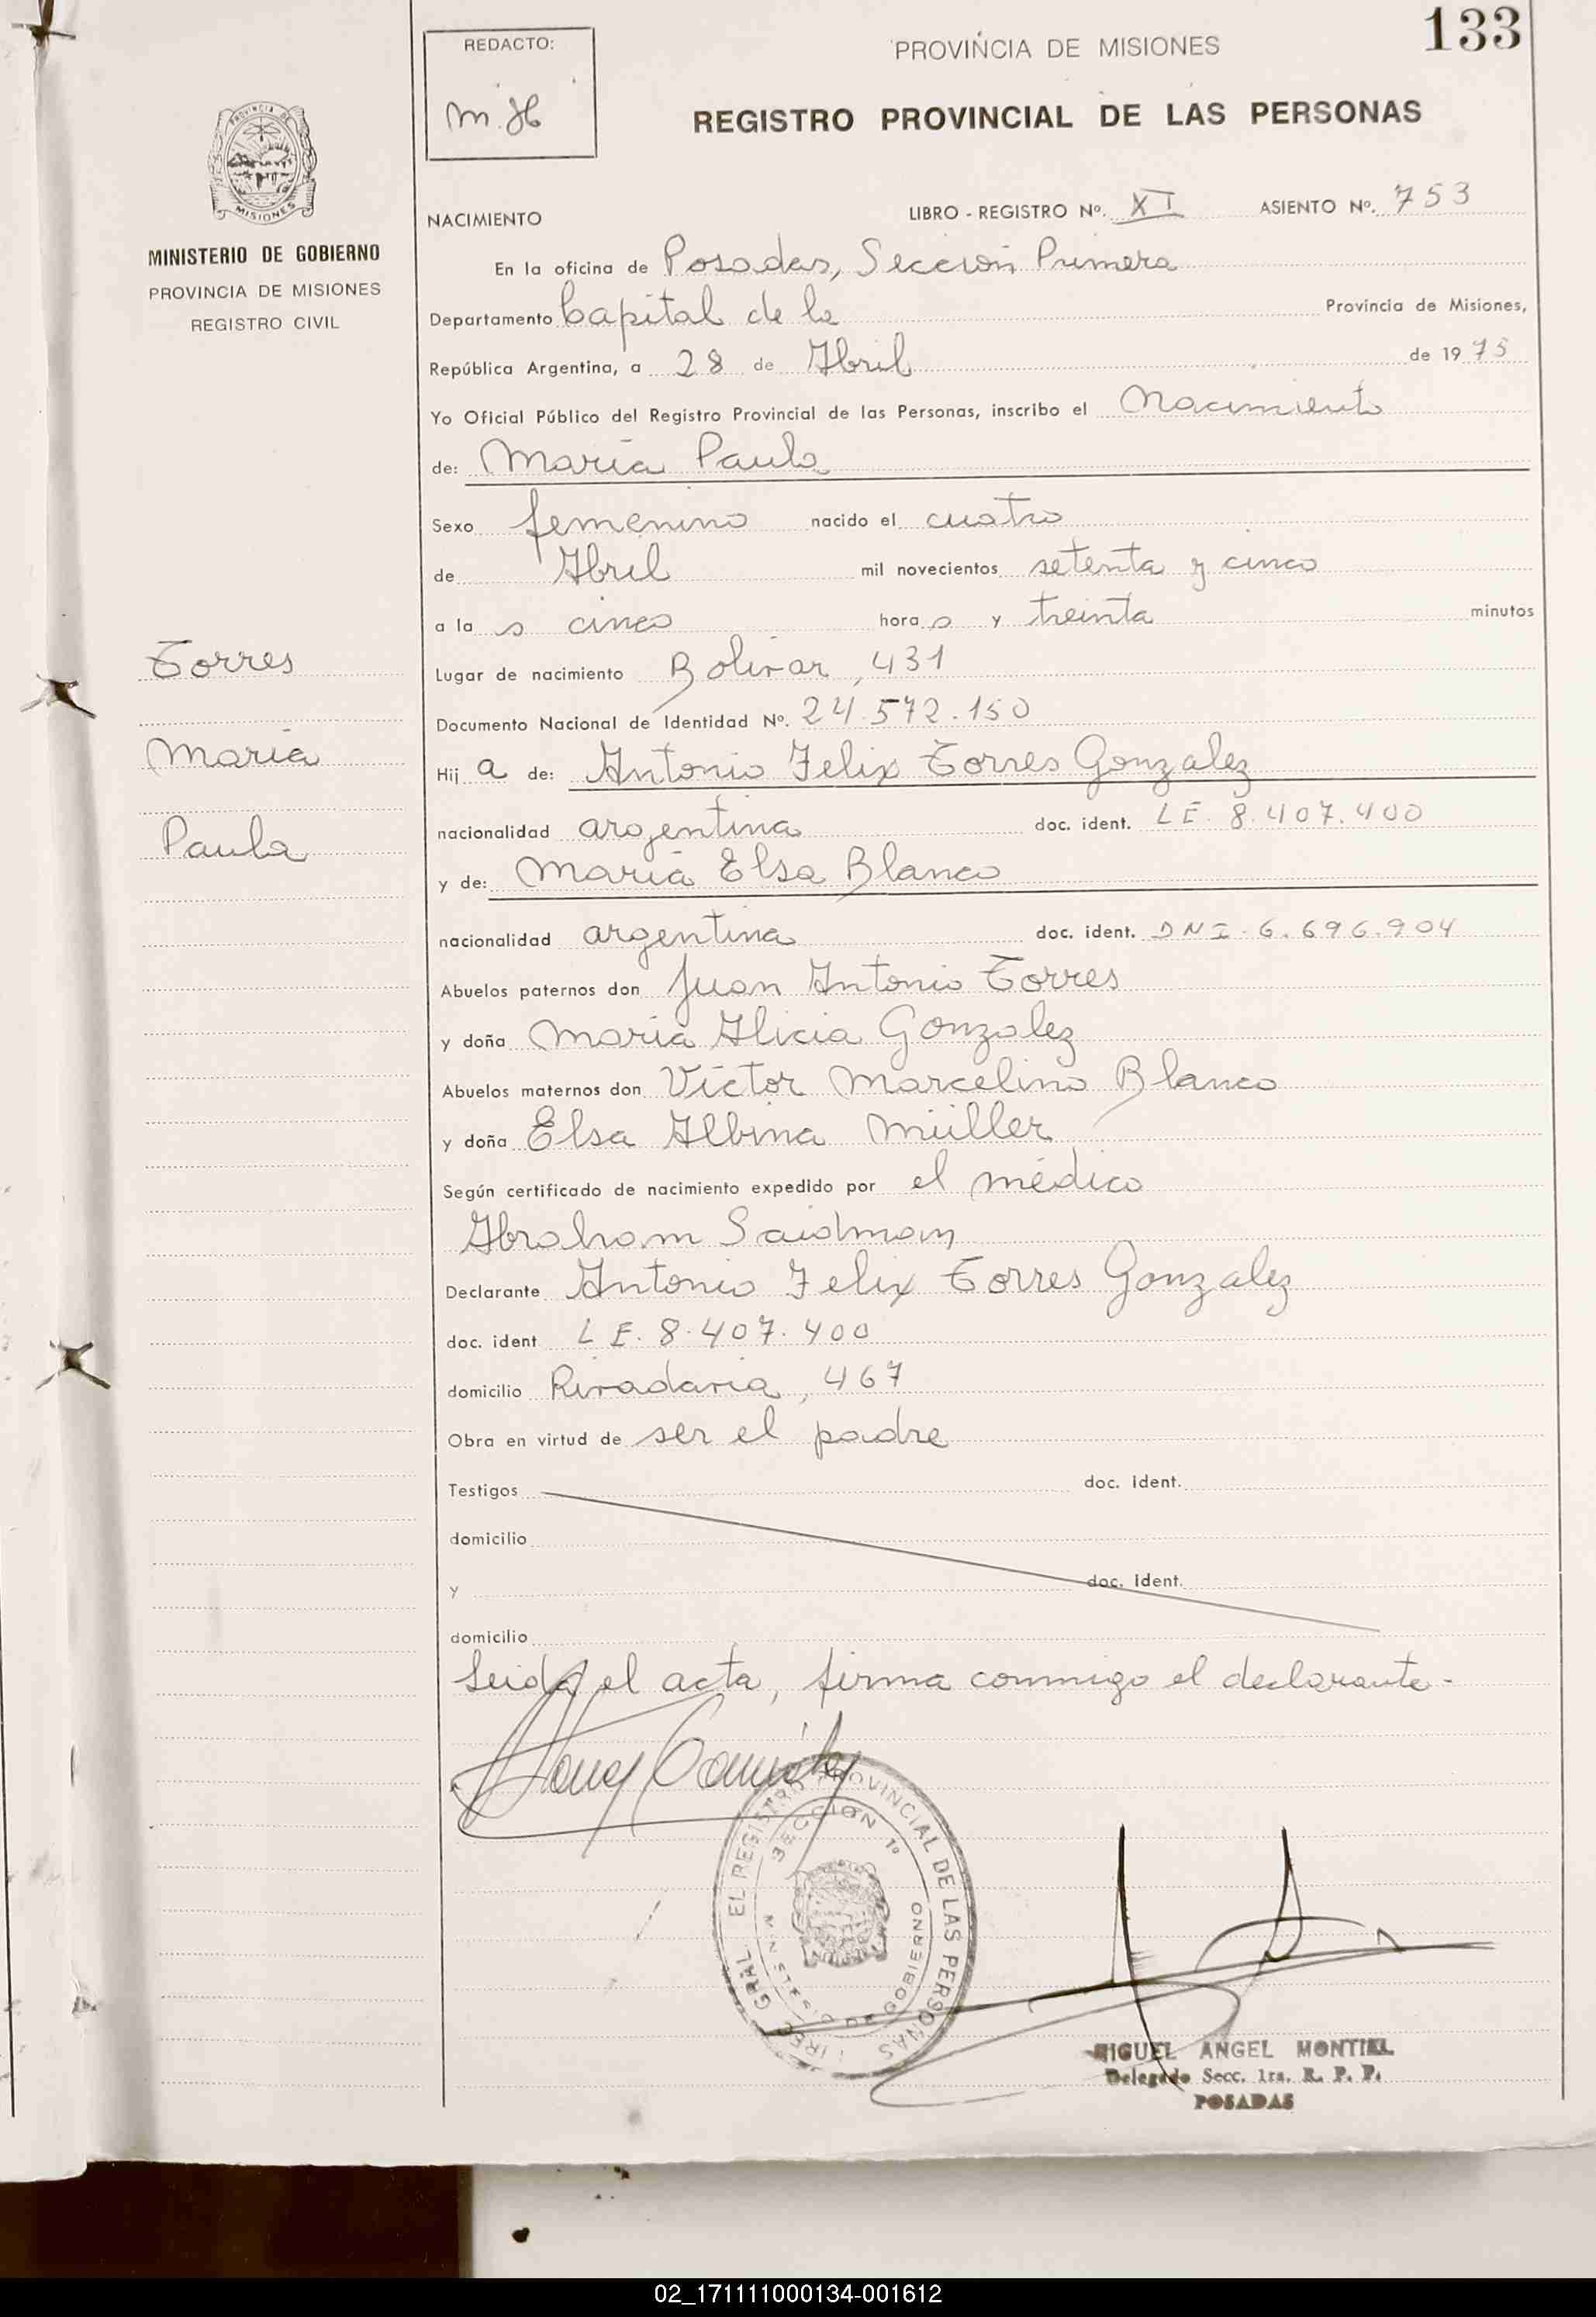 133
REDACTO:
m.H
PROVINCIA DE MISIONES
REGISTRO PROVINCIAL DE LAS PERSONAS
PROVINCIA DE
MISIONES
MINISTERIO DE GOBIERNO
PROVINCIA DE MISIONES
REGISTRO CIVIL
NACIMIENTO
LIBRO - REGISTRO Nº. XI ASIENTO Nº. 753
En la oficina de Posadas, Sección Primera
Departamento Capital de la Provincia de Misiones,
República Argentina, a 28 de Abril de 1975
Yo Oficial Público del Registro Provincial de las Personas, inscribo el Nacimiento
de: María Paula
Sexo femenino nacido el cuatro
de Abril mil novecientos setenta y cinco
a la s cinco hora s y treinta minutos
Torres
Lugar de nacimiento Bolivar, 431
Documento Nacional de Identidad Nº. 24.572.150
María
Hij a de: Antonio Felix Torres Gonzalez
nacionalidad argentina doc. ident. LE. 8.407.400
Paula
y de: María Elsa Blanco
nacionalidad argentina doc. ident. DNI. 6.696.904
Abuelos paternos don Juan Antonio Torres
y doña María Alicia Gonzalez
Abuelos maternos don Víctor Marcelino Blanco
y doña Elsa Albina Müller
Según certificado de nacimiento expedido por el médico
Abraham Saidman
Declarante Antonio Felix Torres Gonzalez
doc. ident LE. 8.407.400
domicilio Rivadavia, 467
Obra en virtud de ser el padre
Testigos doc. ident.
domicilio
y doc. ident.
domicilio
Leida el acta, firma conmigo el declarante.-
DIREC. GRAL. EL REGISTRO PROVINCIAL DE LAS PERSONAS
SECCION 1º
MINISTERIO DE GOBIERNO
MIGUEL ANGEL MONTIEL
Delegado Secc. 1ra. R. P. P.
POSADAS
02_171111000134-001612